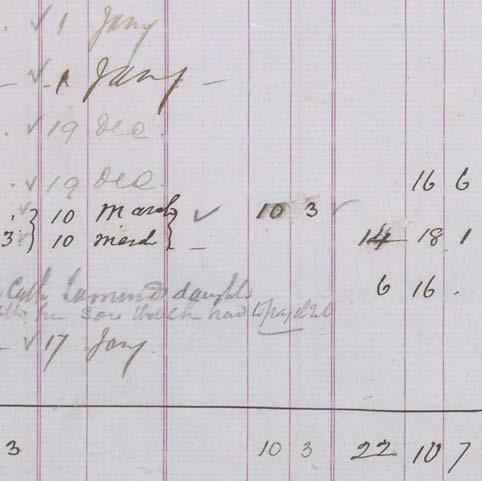 . ✓ 1 Jany
– ✓ 1 Jany –
. ✓ 19 Dec.
. ✓ 19 Dec. 16 6
✓ } 10 March } ✓ 10 3 ✓
3 ✓ } 10 March } – 14 18 1
Cath Lamond daughter 6 16 .
her son had to pay
– ✓ 17 Jany.
3 10 3 22 10 7